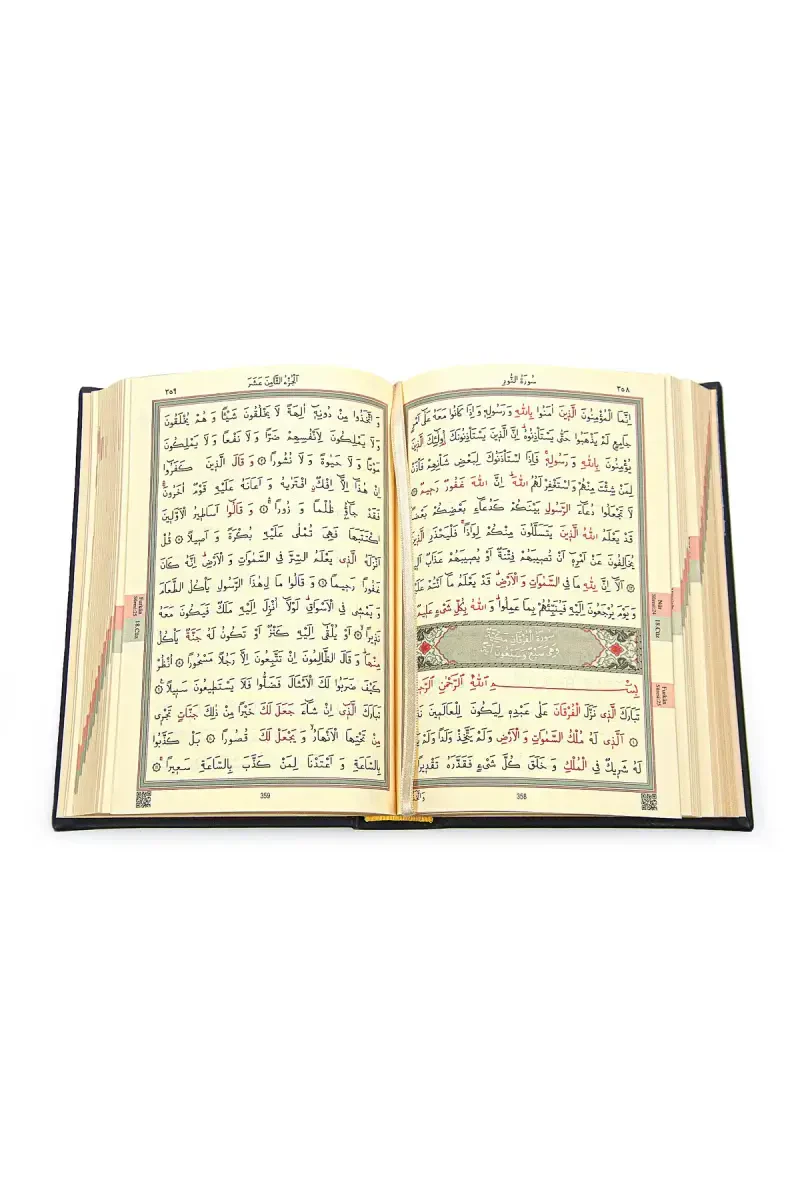 سُورَةُ النُّورِ
٣٥٨
اِنَّمَا الْمُؤْمِنُونَ الَّذِينَ اٰمَنُوا بِاللّٰهِ وَرَسُولِهِ وَاِذَا كَانُوا مَعَهُ عَلٰٓى
جَامِعٍ لَمْ يَذْهَبُوا حَتّٰى يَسْتَأْذِنُوهُ اِنَّ الَّذِينَ يَسْتَأْذِنُونَكَ اُولٰٓئِكَ الَّذِينَ
يُؤْمِنُونَ بِاللّٰهِ وَرَسُولِهِ فَاِذَا اسْتَأْذَنُوكَ لِبَعْضِ شَأْنِهِمْ فَأْذَنْ
لِمَنْ شِئْتَ مِنْهُمْ وَاسْتَغْفِرْ لَهُمُ اللّٰهَ اِنَّ اللّٰهَ غَفُورٌ رَحِيمٌ
لَا تَجْعَلُوا دُعَٓاءَ الرَّسُولِ بَيْنَكُمْ كَدُعَٓاءِ بَعْضِكُمْ بَعْضًا
قَدْ يَعْلَمُ اللّٰهُ الَّذِينَ يَتَسَلَّلُونَ مِنْكُمْ لِوَاذًا فَلْيَحْذَرِ الَّذِينَ
يُخَالِفُونَ عَنْ اَمْرِهِ اَنْ تُصِيبَهُمْ فِتْنَةٌ اَوْ يُصِيبَهُمْ عَذَابٌ
اَلَٓا اِنَّ لِلّٰهِ مَا فِي السَّمٰوَاتِ وَالْاَرْضِ قَدْ يَعْلَمُ مَٓا اَنْتُمْ عَلَيْهِ
وَيَوْمَ يُرْجَعُونَ اِلَيْهِ فَيُنَبِّئُهُمْ بِمَا عَمِلُوا وَاللّٰهُ بِكُلِّ شَيْءٍ عَلِيمٌ
سُورَةُ الْفُرْقَانِ مَكِّيَّةٌ
وَهِيَ سَبْعٌ وَسَبْعُونَ اٰيَةً
بِسْمِ اللّٰهِ الرَّحْمٰنِ الرَّحِيمِ
تَبَارَكَ الَّذِي نَزَّلَ الْفُرْقَانَ عَلٰى عَبْدِهِ لِيَكُونَ لِلْعَالَمِينَ
١ اَلَّذِي لَهُ مُلْكُ السَّمٰوَاتِ وَالْاَرْضِ وَلَمْ يَتَّخِذْ وَلَدًا وَلَمْ
لَهُ شَرِيكٌ فِي الْمُلْكِ وَخَلَقَ كُلَّ شَيْءٍ فَقَدَّرَهُ تَقْدِيرًا
358
Nûr
Sûresi:24
18.Cüz
Furkân
Sûresi:25
اَلْجُزْءُ الثَّامِنَ عَشَرَ
٣٥٩
وَاتَّخَذُوا مِنْ دُونِهِٓ اٰلِهَةً لَا يَخْلُقُونَ شَيْئًا وَهُمْ يُخْلَقُونَ
وَلَا يَمْلِكُونَ لِاَنْفُسِهِمْ ضَرًّا وَلَا نَفْعًا وَلَا يَمْلِكُونَ
مَوْتًا وَلَا حَيٰوةً وَلَا نُشُورًا ٣ وَقَالَ الَّذِينَ كَفَرُٓوا
اِنْ هٰذَٓا اِلَّٓا اِفْكٌ افْتَرٰيهُ وَاَعَانَهُ عَلَيْهِ قَوْمٌ اٰخَرُونَ
فَقَدْ جَٓاؤُ ظُلْمًا وَزُورًا ٤ وَقَالُٓوا اَسَاطِيرُ الْاَوَّلِينَ
اكْتَتَبَهَا فَهِيَ تُمْلٰى عَلَيْهِ بُكْرَةً وَاَصِيلًا ٥ قُلْ
اَنْزَلَهُ الَّذِي يَعْلَمُ السِّرَّ فِي السَّمٰوَاتِ وَالْاَرْضِ اِنَّهُ كَانَ
غَفُورًا رَحِيمًا ٦ وَقَالُوا مَالِ هٰذَا الرَّسُولِ يَأْكُلُ الطَّعَامَ
وَيَمْشِي فِي الْاَسْوَاقِ لَوْلَٓا اُنْزِلَ اِلَيْهِ مَلَكٌ فَيَكُونَ مَعَهُ
نَذِيرًا ٧ اَوْ يُلْقٰٓى اِلَيْهِ كَنْزٌ اَوْ تَكُونُ لَهُ جَنَّةٌ يَأْكُلُ
مِنْهَا وَقَالَ الظَّالِمُونَ اِنْ تَتَّبِعُونَ اِلَّا رَجُلًا مَسْحُورًا ٨ اُنْظُرْ
كَيْفَ ضَرَبُوا لَكَ الْاَمْثَالَ فَضَلُّوا فَلَا يَسْتَطِيعُونَ سَبِيلًا ٩
تَبَارَكَ الَّذِٓي اِنْ شَٓاءَ جَعَلَ لَكَ خَيْرًا مِنْ ذٰلِكَ جَنَّاتٍ تَجْرِي
مِنْ تَحْتِهَا الْاَنْهَارُ وَيَجْعَلْ لَكَ قُصُورًا ١٠ بَلْ كَذَّبُوا
بِالسَّاعَةِ وَاَعْتَدْنَا لِمَنْ كَذَّبَ بِالسَّاعَةِ سَعِيرًا ١١
359
Furkân
Sûresi:25
18.Cüz